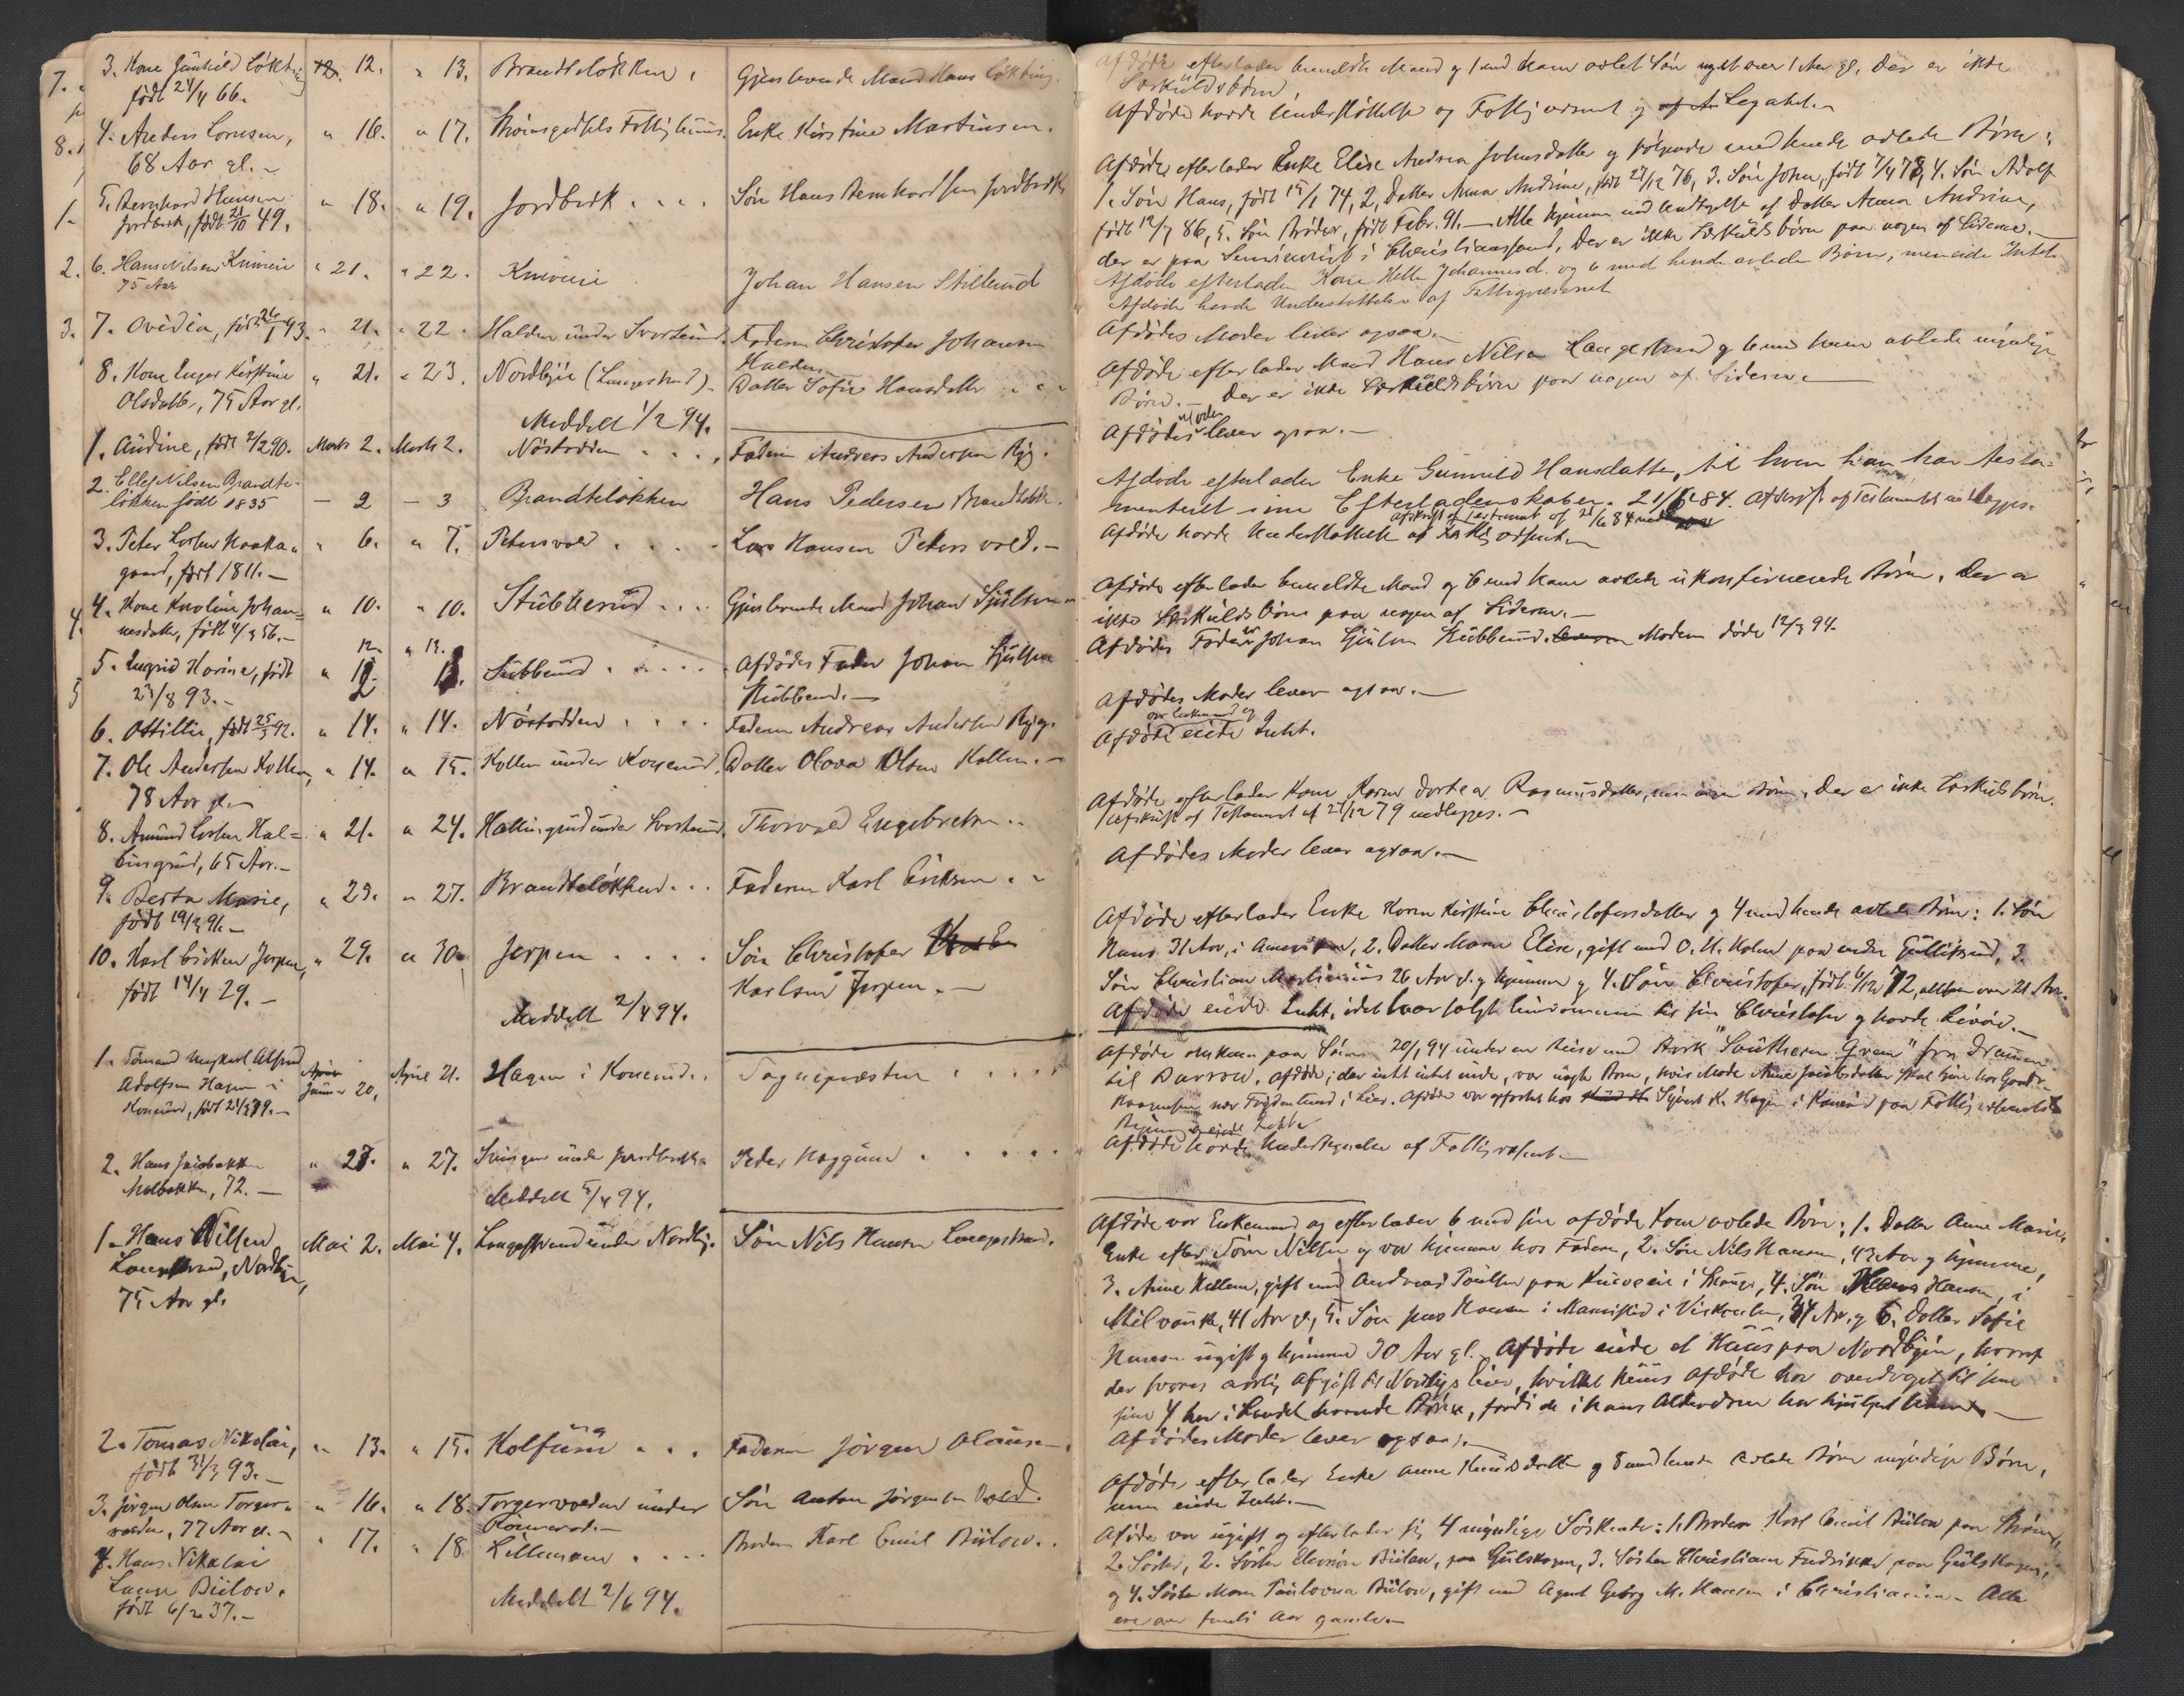 3. Kone Gunhild Løkting 12. " 13. Brandtløkken. Gjenlevende Mand Hans Løkting.
født 21/4 66.
4. Anders Larsen, " 16. " 17. Fattighuus. Enke Kirstine Martinsen.
68 Aar gl.
5. Bernhard Hansen " 18. " 19. Jordbræk . . . . Søn Hans Bernhardsen Jordbræk
Jordbræk, født 21/10 49.
6. Hans Nilsen Kniveie " 21. " 22. Kniveie Johan Hansen Stillund
75 Aar
7. Ovidia, født 26/1 93. " 21. " 22. Halden under Svarterud. Faderen Christofer Johansen
Halden
8. Kone Inger Kirstine " 21. " 23. Nordbyie (Langestrand) Datter Sofie Hansdatter
Olsdatter, 75 Aar gl.
Meddelt 1/2 94.
1. Audine, født 2/2 90. Marts 2. Marts 2. Nøstodden . . . . Faderen Andreas Andersen Ryg.
2. Ellef Nilsen Brandte- — 2 — 3 Brandteløkken Hans Pedersen
løkken født 1835
3. Peter Larsen " 6. " 7. Petersvold . . . . Lars Hansen Petersvold.
gaard, født 1811.
4. Kone Karoline Johan- " 10. " 10. Stubberud . . . Gjenlevende Mand Johan
nesdatter, født 4/9 56.
12. " 13.
5. Ingrid Karine, født Stubberud . . . . . Afdødes Fader Johan
23/8 93. Stubberud.
6. Ottillie, født 25/3 92. " 14. " 14. Nøstodden . . . . Faderen Andreas Andersen Ryg.
7. Ole Andersen Kollen, " 14. " 15. Kollen under Korserud. Datter Olava Olsen Kollen.
78 Aar gl.
8. Amund Larsen Hal- " 21. " 24. Hallingrud under Svarterud, Thorvald Engebretsen
lingrud, 65 Aar.
9. Berta Marie, " 23. " 27. Brandteløkken . . . Faderen Karl Eriksen
født 19/3 91.
10. Karl Eriksen Jerpen, " 29. " 30. Jerpen . . . . Søn Christofer
født 14/4 29. Karlsen Jerpen.
Meddelt 2/4 94.
1. Sømand Ungkarl Alfred April April 21. Hagen i Korserud. Sognepresten . . . . .
Adolfsen Hagen i Januar 20,
Korserud, født
2. Hans Jacobsen " 23. " 27. Svingen under Jordbræk Peder Haggum . . . . .
Melbakken, 72.
Meddelt 5/4 94.
1. Hans Nilsen Mai 2. Mai 4. Langestrand under Nordby. Søn Nils Hansen Langestrand.
Langestrand, Nordby,
75 Aar gl.
2. Tomas Nikolai, " 13. " 15. Kolfuru . . . Faderen Jørgen Olausen.
født 31/3 93.
3. Jørgen Olsen Torger- " 16. " 18. Torgervolden under Søn Anton Jørgensen Vold.
volden, 77 Aar gl.
4. Hans Nikolai " 17. " 18. Lillemoen . . . . Broderen Karl Emil Bülow.
Lange Bülow.
født 6/2 37. Meddelt 2/6 94.
Afdøde efterlader bemeldte Mand og 1 med ham avlet Søn 1 Aar gl, der er ikke
Særkuldsbørn
Afdøde havde Understøttelse og Fattigvæsenet og Legatet.
Afdøde efterlader Enke Elise Andrea Johnsdatter og følgende med hende avlede Børn:
1. Søn Hans, født 15/1 74, 2. Datter Anna Andrine, født 27/12 76, 3. Søn Johan, født 7/4 78, 4. Søn Adolf
født 12/7 86, 5. Søn født Febr. 91. — Alle hjemme med Undtagelse af Datter Anna Andrine,
der er paa Seminariet i Christianssand, der er ikke Særkuldsbørn paa nogen af Siderne.
Afdøde efterlader Kone Helle Johannesd. og 6 med hende avlede Børn, men eide Intet
Afdøde havde Understøttelse af Fattigvæsenet
Afdødes Moder lever ogsaa.
Afdøde efterlader Mand Hans Nilsen Langestrand og 6 med ham avlede myndige
Børn. — der er ikke Særkuldsbørn paa nogen af Siderne.
Afdødes Moder lever ogsaa. —
Afdøde efterlader Enke Gunnild Hansdatter, til hvem han har testa-
menteret sine Efterladenskaber. 21/6 84. Afskrift af Testamentet vedlægges.
Afdøde havde Understøttelse af Fattigvæsenet.
Afdøde efterlader bemeldte Mand og 6 med ham avlede ukonfirmerede Børn. Der er
ikke Særkuldsbørn paa nogen af Siderne.
Afdødes Fader er Johan Stubberud. Moderen døde 12/3 94.
Afdødes Moder lever ogsaa.
var Enkemand og
Afdøde eiede Intet.
Afdøde efterlader Kone Karen Dortea Rasmusdatter, men ingen Børn, der er ikke Særkuldsbørn.
Afskrift af Testament af 21/12 79 vedlægges.
Afdødes Moder lever ogsaa. —
Afdøde efterlader Enke Karen Kirstine Christofersdatter og 4 med hende avlede Børn: 1. Søn
Hans 31 Aar, i Amerika, 2. Datter Maren Elise, gift med O. H. Holm paa nedre Gullikrud, 3.
Søn Christian Martinius 26 Aar gl. og hjemme og 4. Søn Christofer, født 6/12 72, altsaa over 21 Aar.
Afdøde eiede Intet, idet han har solgt Eiendommen til sin Christofer og havde Livøre.
Afdøde omkom paa Søen 20/1 94 under en Reise med Bark "Southern Queen" fra Drammen
til Barrow. Afdøde, der intet eiede, var uægte Barn, hvis Moder Anne Jacobsdatter skal tjene hos Gaardb.
nær Fogderlund i Lier. Afdøde var opfostret hos Syvert K. Hagen i Korserud paa Fattigvæsenets
Regning og eiede Intet
Afdøde havde Understøttelse af Fattigvæsenet.
Afdøde var Enkemand og efterlader 6 med sin afdøde Kone avlede Børn: 1. Datter Anne Marie,
Enke efter Søren Nilsen og var hjemme hos Faderen, 2. Søn Nils Hansen, 43 Aar og hjemme,
3. Anne Helene, gift med Andreas Paulsen paa Kniveeie i 4. Søn Hans Hansen, i
Milvauke, 41 Aar gl, 5. Søn Jens Hansen i i 34 Aar, og 6. Datter Sofie
Hansen ugift og hjemme 30 Aar gl. Afdøde eiede et Huus paa Nordbyeie, hvoraf
der svares aarlig Afgift til Nordbys Eier, hvilket Huus Afdøde har overdraget til sine
sine 4 her i Landet boende Børn, fordi de i hans Alderdom har hjulpet ham. —
Afdødes Moder lever ogsaa. —
Afdøde efterlader Enke Anne og 8 med hende avlede Børn myndige Børn,
men eiede Intet. —
Afdøde var ugift og efterlader sig 4 myndige Søskende: 1. Broderen Karl Emil Bülow paa
2. Søster, 2. Søster Eleonore Bülow, paa Gulskogen, 3. Søster Christiane Fredrikke paa Gulskogen,
og 4. Søster Maren Paulowna Bülow, gift med Agent Georg M. Hansen i Christiania. — Alle
ere over femti Aar gamle.